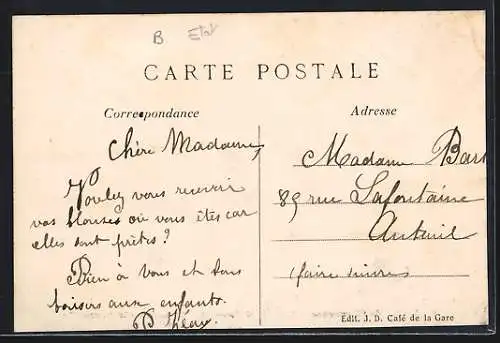 B Etat
CARTE POSTALE
Correspondance
Adresse
Chère Madame,
Voulez vous recevoir
vos blouses où vous êtes car
elles sont prêtes ?
Bien à vous et
baisers aux enfants.
Madame Bar
89 rue Lafontaine
Auteuil
(faire suivre)
Edit. J. D. Café de la Gare